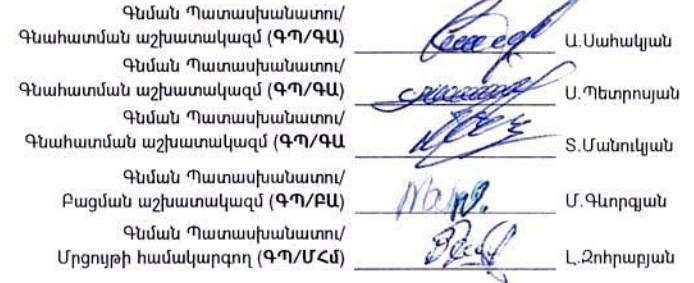 Գնման Պատասխանատու/
Գնահատման աշխատակազմ (ԳՊ/ԳԱ) Ա.Սահակյան
Գնման Պատասխանատու/
Գնահատման աշխատակազմ (ԳՊ/ԳԱ) Ս.Պետրոսյան
Գնման Պատասխանատու/
Գնահատման աշխատակազմ (ԳՊ/ԳԱ Տ.Մանուկյան
Գնման Պատասխանատու/
Բացման աշխատակազմ (ԳՊ/ԲԱ) Մ.Գևորգյան
Գնման Պատասխանատու/
Մրցույթի համակարգող (ԳՊ/ՄՀմ) Լ.Զոհրաբյան